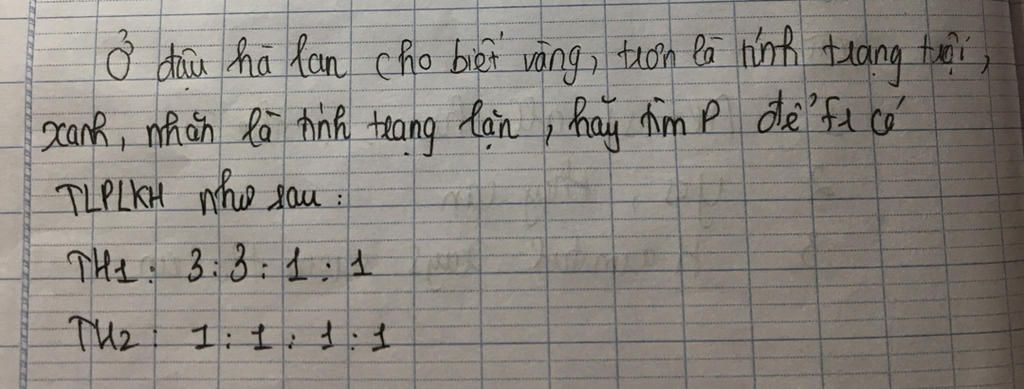 Ở đậu hà lan cho biết vàng, trơn là tính trạng trội,
xanh, nhăn là tính trạng lặn, hãy tìm P để F1 có
TLPLKH như sau:
TH1: 3:3:1:1
TH2: 1:1:1:1